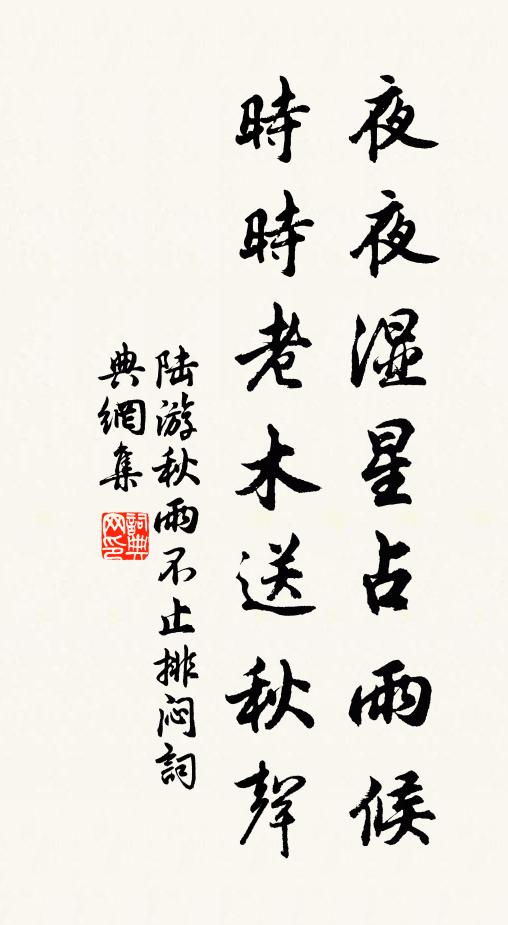 夜夜湿星占雨候
時時老木送秋聲
陆游秋雨不止排闷詞
典網集
詞典
网印